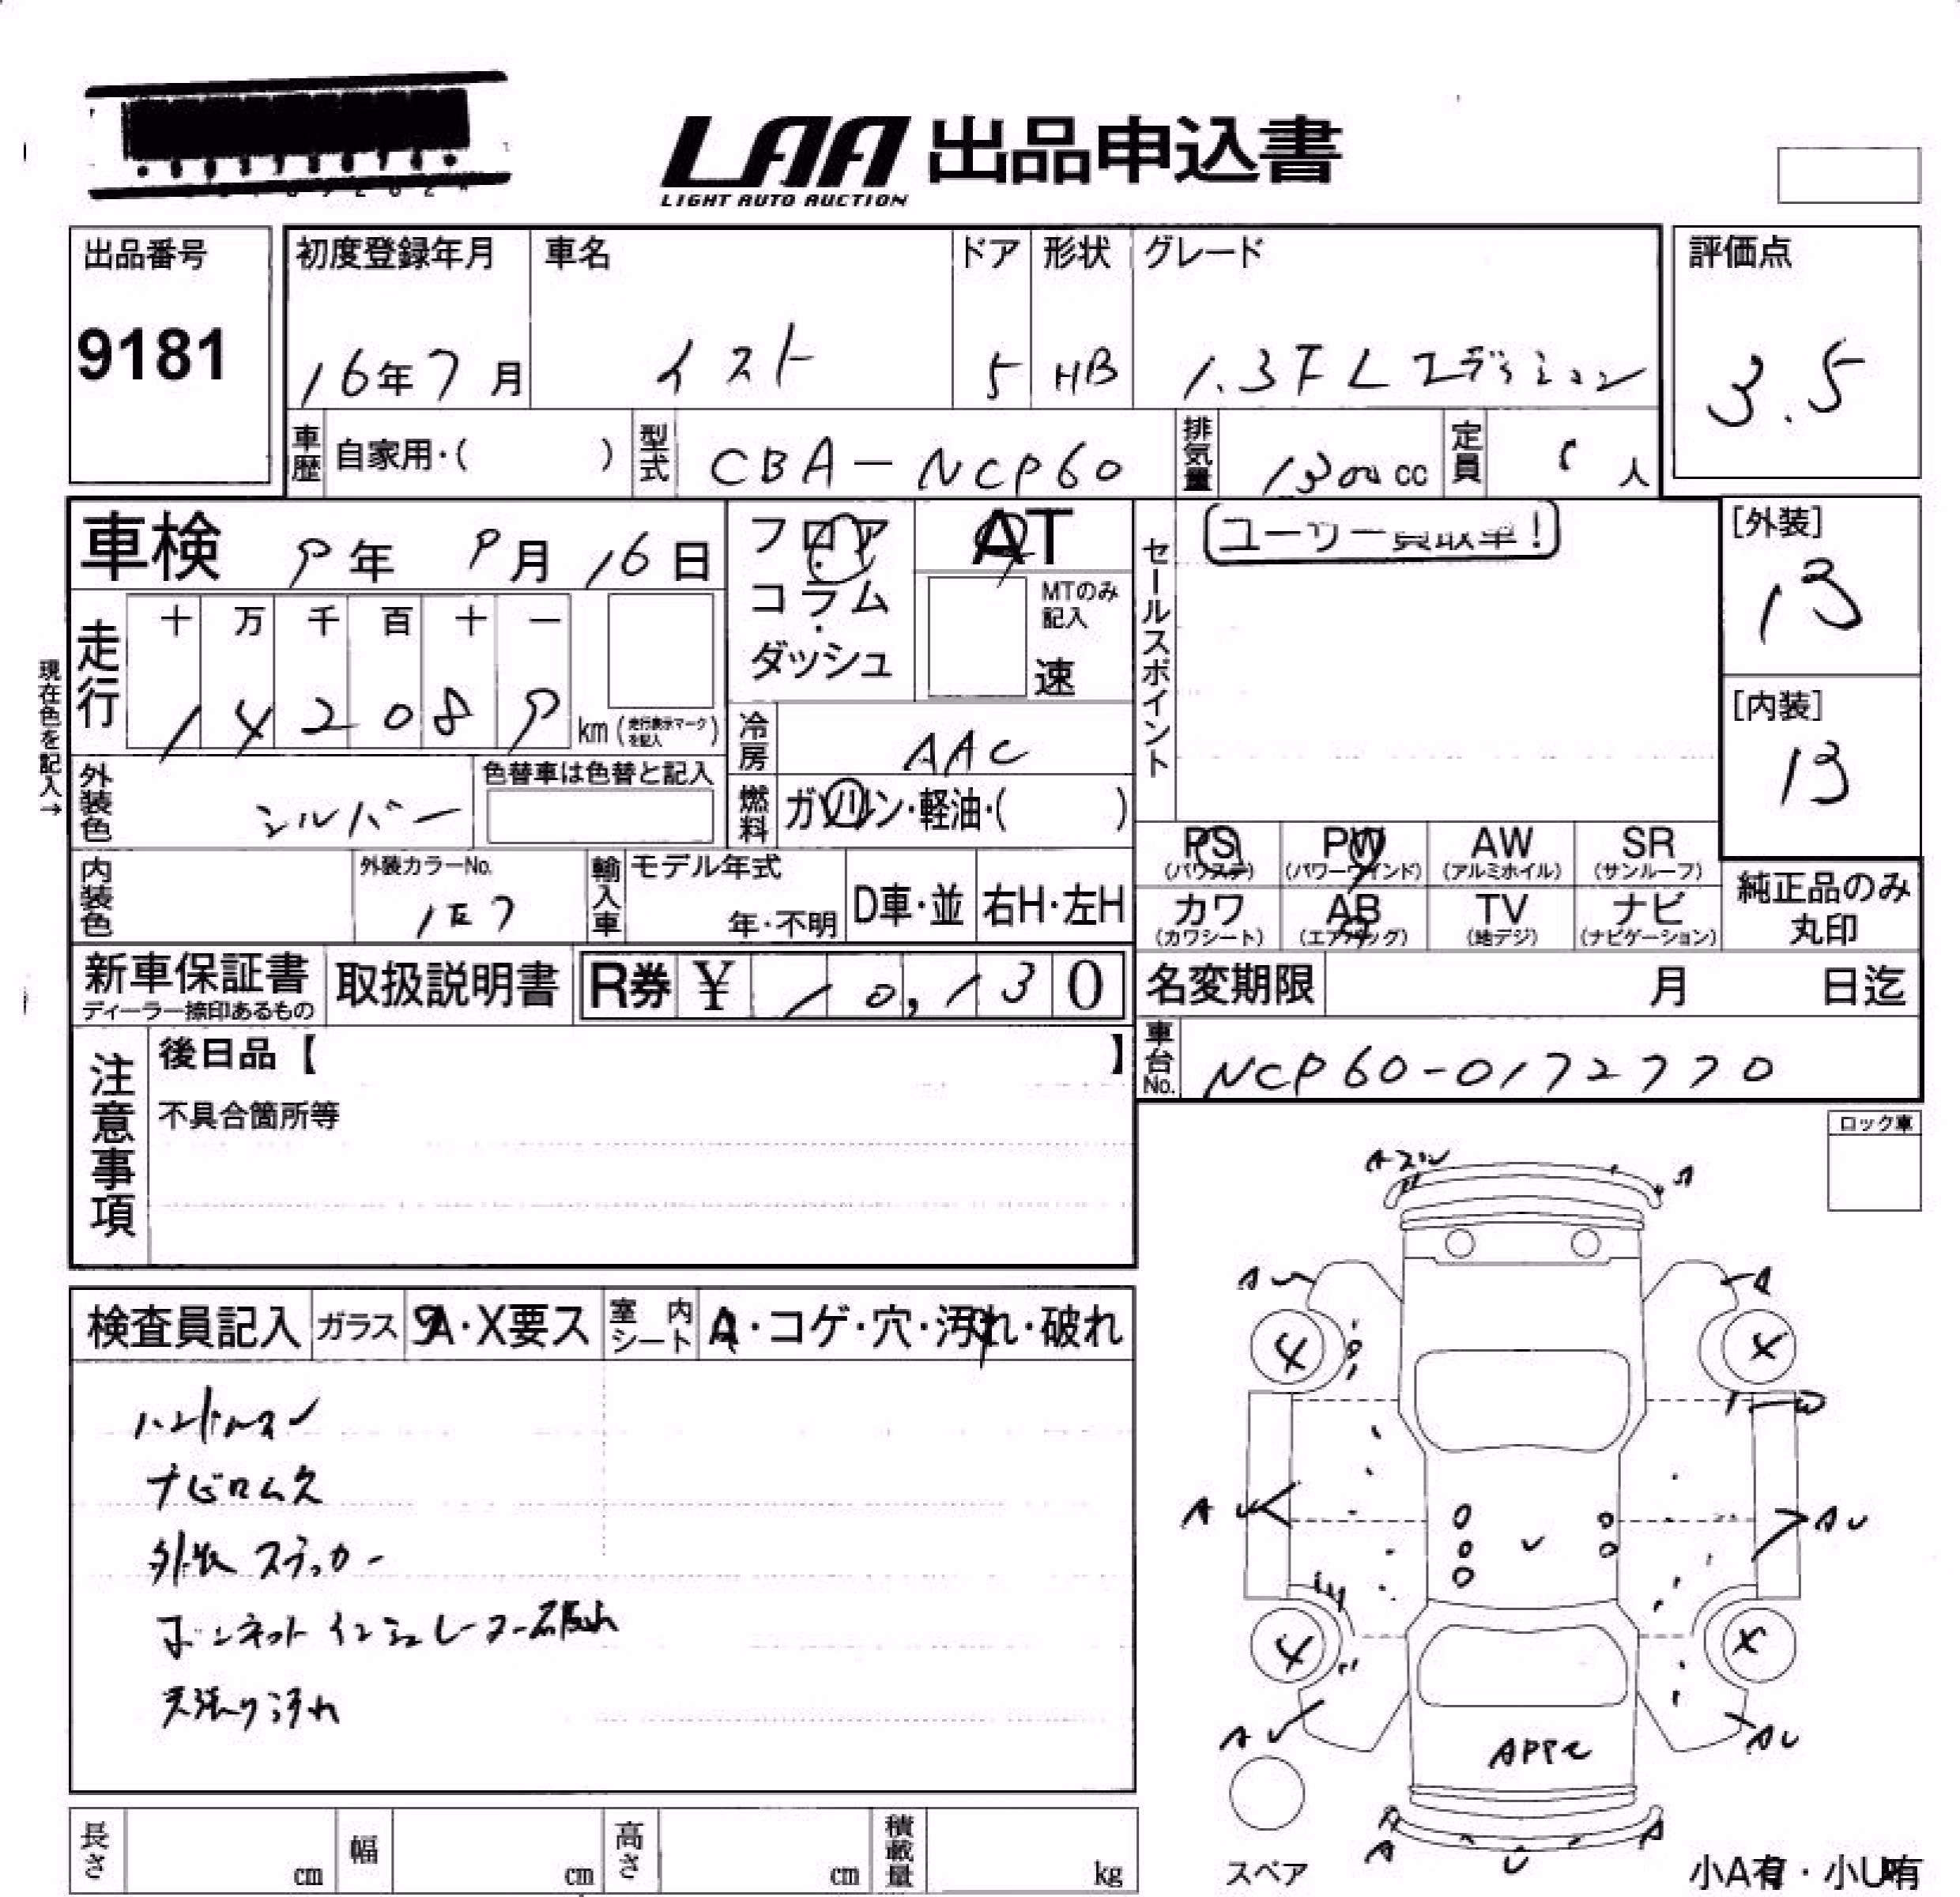 LAA 出品申込書
LIGHT AUTO AUCTION
出品番号
9181
初度登録年月 車名 ドア 形状 グレード
16年7月 イスト 5 HB 1.3F Lエディション
評価点
3.5
車歴 自家用・( ) 型式 CBA-NCP60 排気量 1300cc 定員 人
車検 9年 9月 16日
フロア・コラム・ダッシュ
AT
MTのみ記入
速
セールスポイント
ユーザー買取車!
[外装]
B
[内装]
B
現在色を記入→
走行 十 万 千 百 十 一
142089 km (走行表示マークを記入)
冷房 AAC
外装色 シルバー
色替車は色替と記入
燃料 ガソリン・軽油・( )
PS (パワステ) PW (パワーウインド) AW (アルミホイル) SR (サンルーフ)
カワ (カワシート) AB (エアバッグ) TV (地デジ) ナビ (ナビゲーション)
純正品のみ
丸印
内装色 外装カラーNo. 1E7
輸入車 モデル年式 年・不明 D車・並 右H・左H
新車保証書
ディーラー捺印あるもの
取扱説明書
R券 ¥ 10,130
名変期限 月 日迄
車台No. NCP60-0172770
注意事項
後日品【 】
不具合箇所等
ロック車
検査員記入 ガラス A・X要ス 室内シート A・コゲ・穴・汚れ・破れ
ハンドルスレ
ナビロム欠
外装ステッカー
ボンネットインシュレーター破れ
天張り汚れ
A
A
A
4
X
W
AU
AU
4
X
AU
AU
APPC
A
A
U
スペア
小A有・小U有
長さ cm 幅 cm 高さ cm 積載量 kg